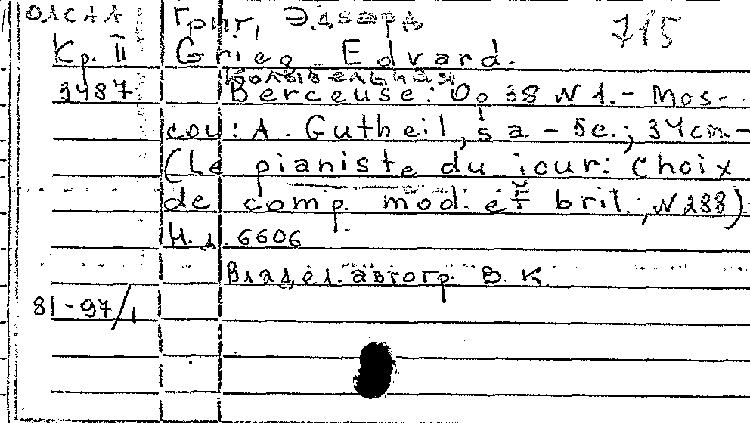 ОЛСАА Григ, Эдвард 715
Кр. II Grieg Edvard.
Колыбельная
3487 Berceuse: Op 38 N 1. - Mos-
cou: A. Gutheil, s a - 5c.; 34cm -
(Le pianiste du jour: Choix
de comp. mod. et bril; N 288)
Н. д. 6606
Владел. автогр. В. К.
81-97/1